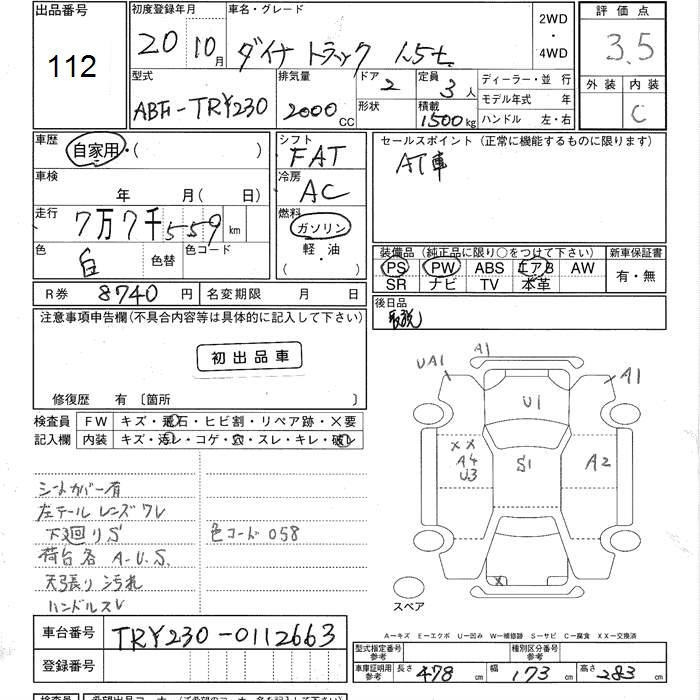 出品番号
112
初度登録年月
20 10月
車名・グレード
ダイナトラック 1.5t
2WD
・
4WD
評価点
3.5
外装 内装
C
型式
ABF-TRY230
排気量
2000 CC
ドア
2
形状
定員
3人
積載
1500kg
ディーラー・並行
モデル年式 年
ハンドル 左・右
車歴
自家用・( )
車検
年 月(日)
走行
7万7千559km
色
白
色替
色コード
シフト
FAT
冷房
AC
燃料
ガソリン
軽・油
( ・ )
セールスポイント(正常に機能するものに限ります)
AT車
装備品(純正品に限り○をつけて下さい)
PS PW ABS エアB AW
SR ナビ TV 本革
新車保証書
有・無
R券 8740円
名変期限 月 日
後日品
取説
注意事項申告欄(不具合内容等は具体的に記入して下さい)
初出品車
修復歴 有 〔箇所 〕
検査員
記入欄
FW キズ・飛石・ヒビ割・リペア跡・×要
内装 キズ・汚レ・コゲ・穴・スレ・キレ・破レ
シートカバー有
左テールレンズワレ
下廻りS
色コード058
荷台各A.U.S.
天張り汚れ
ハンドルスレ
UA1
A1
A1
U1
XX
A4
U3
S1
A2
X
スペア
車台番号
TRY230-0112663
登録番号
A─キズ E─エクボ U─凹み W─補修跡 S─サビ C─腐食 XX─交換済
型式指定番号
参考
種別区分番号
参考
車庫証明用
参考
長さ 478cm
幅 173cm
高さ 283cm
検査員
希望出品コーナー(ご希望のコーナー名を記入下さい)